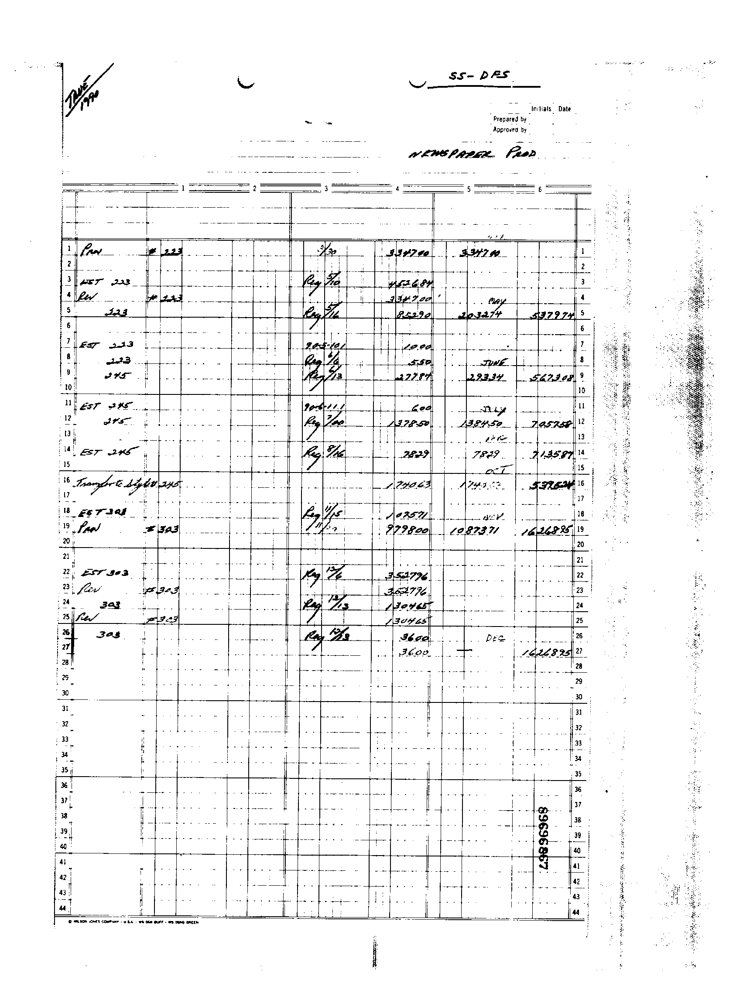 TRUE
1990
SS-DFS
Initials Date
Prepared by
Approved by
NEWSPAPER PROD
1 2 3 4 5 6
1 PAN # 223 3/30 334700 334700 1
2 2
3 EST 223 Reg 5/10 452684 3
4 Rev # 223 334700 MAY 4
5 223 Reg 5/16 85290 203274 537974 5
6 6
7 EST 223 90-5-101 1000 7
8 223 Reg 6/6 550 JUNE 8
9 245 Reg 6/13 27784 29334 567308 9
10 10
11 EST 245 90-6-11.1 600 JULY 11
12 245 Reg 137850 138450 705758 12
13 13
14 EST 245 Reg 8/16 7829 7829 713587 14
15 OCT 15
16 245 174063 16
17 17
18 EST 303 Reg 11/15 107571 NOV 18
19 PAN # 303 979800 1087371 1626895 19
20 20
21 21
22 EST 303 Reg 12/6 352796 22
23 Rev # 303 352796 23
24 303 Reg 12/13 130465 24
25 Rev # 303 130465 25
26 303 Reg 3600 DEC 26
27 3600 — 1626895 27
28 28
29 29
30 30
31 31
32 32
33 33
34 34
35 35
36 36
37 37
38 38
39 39
40 40
41 41
42 42
43 43
44 44
89696867
© WILSON JONES COMPANY